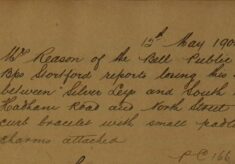 15th May 190
Mr Reason of the Bell Public
Bps Stortford reports losing his
between Silver Leys and South
Hadham Road and North Street
curb bracelet with small padlo
charms attached
P.C 166